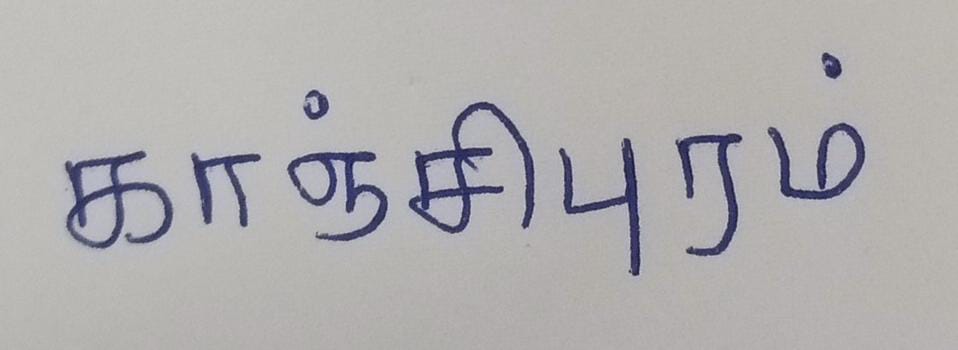 காஞ்சிபுரம்